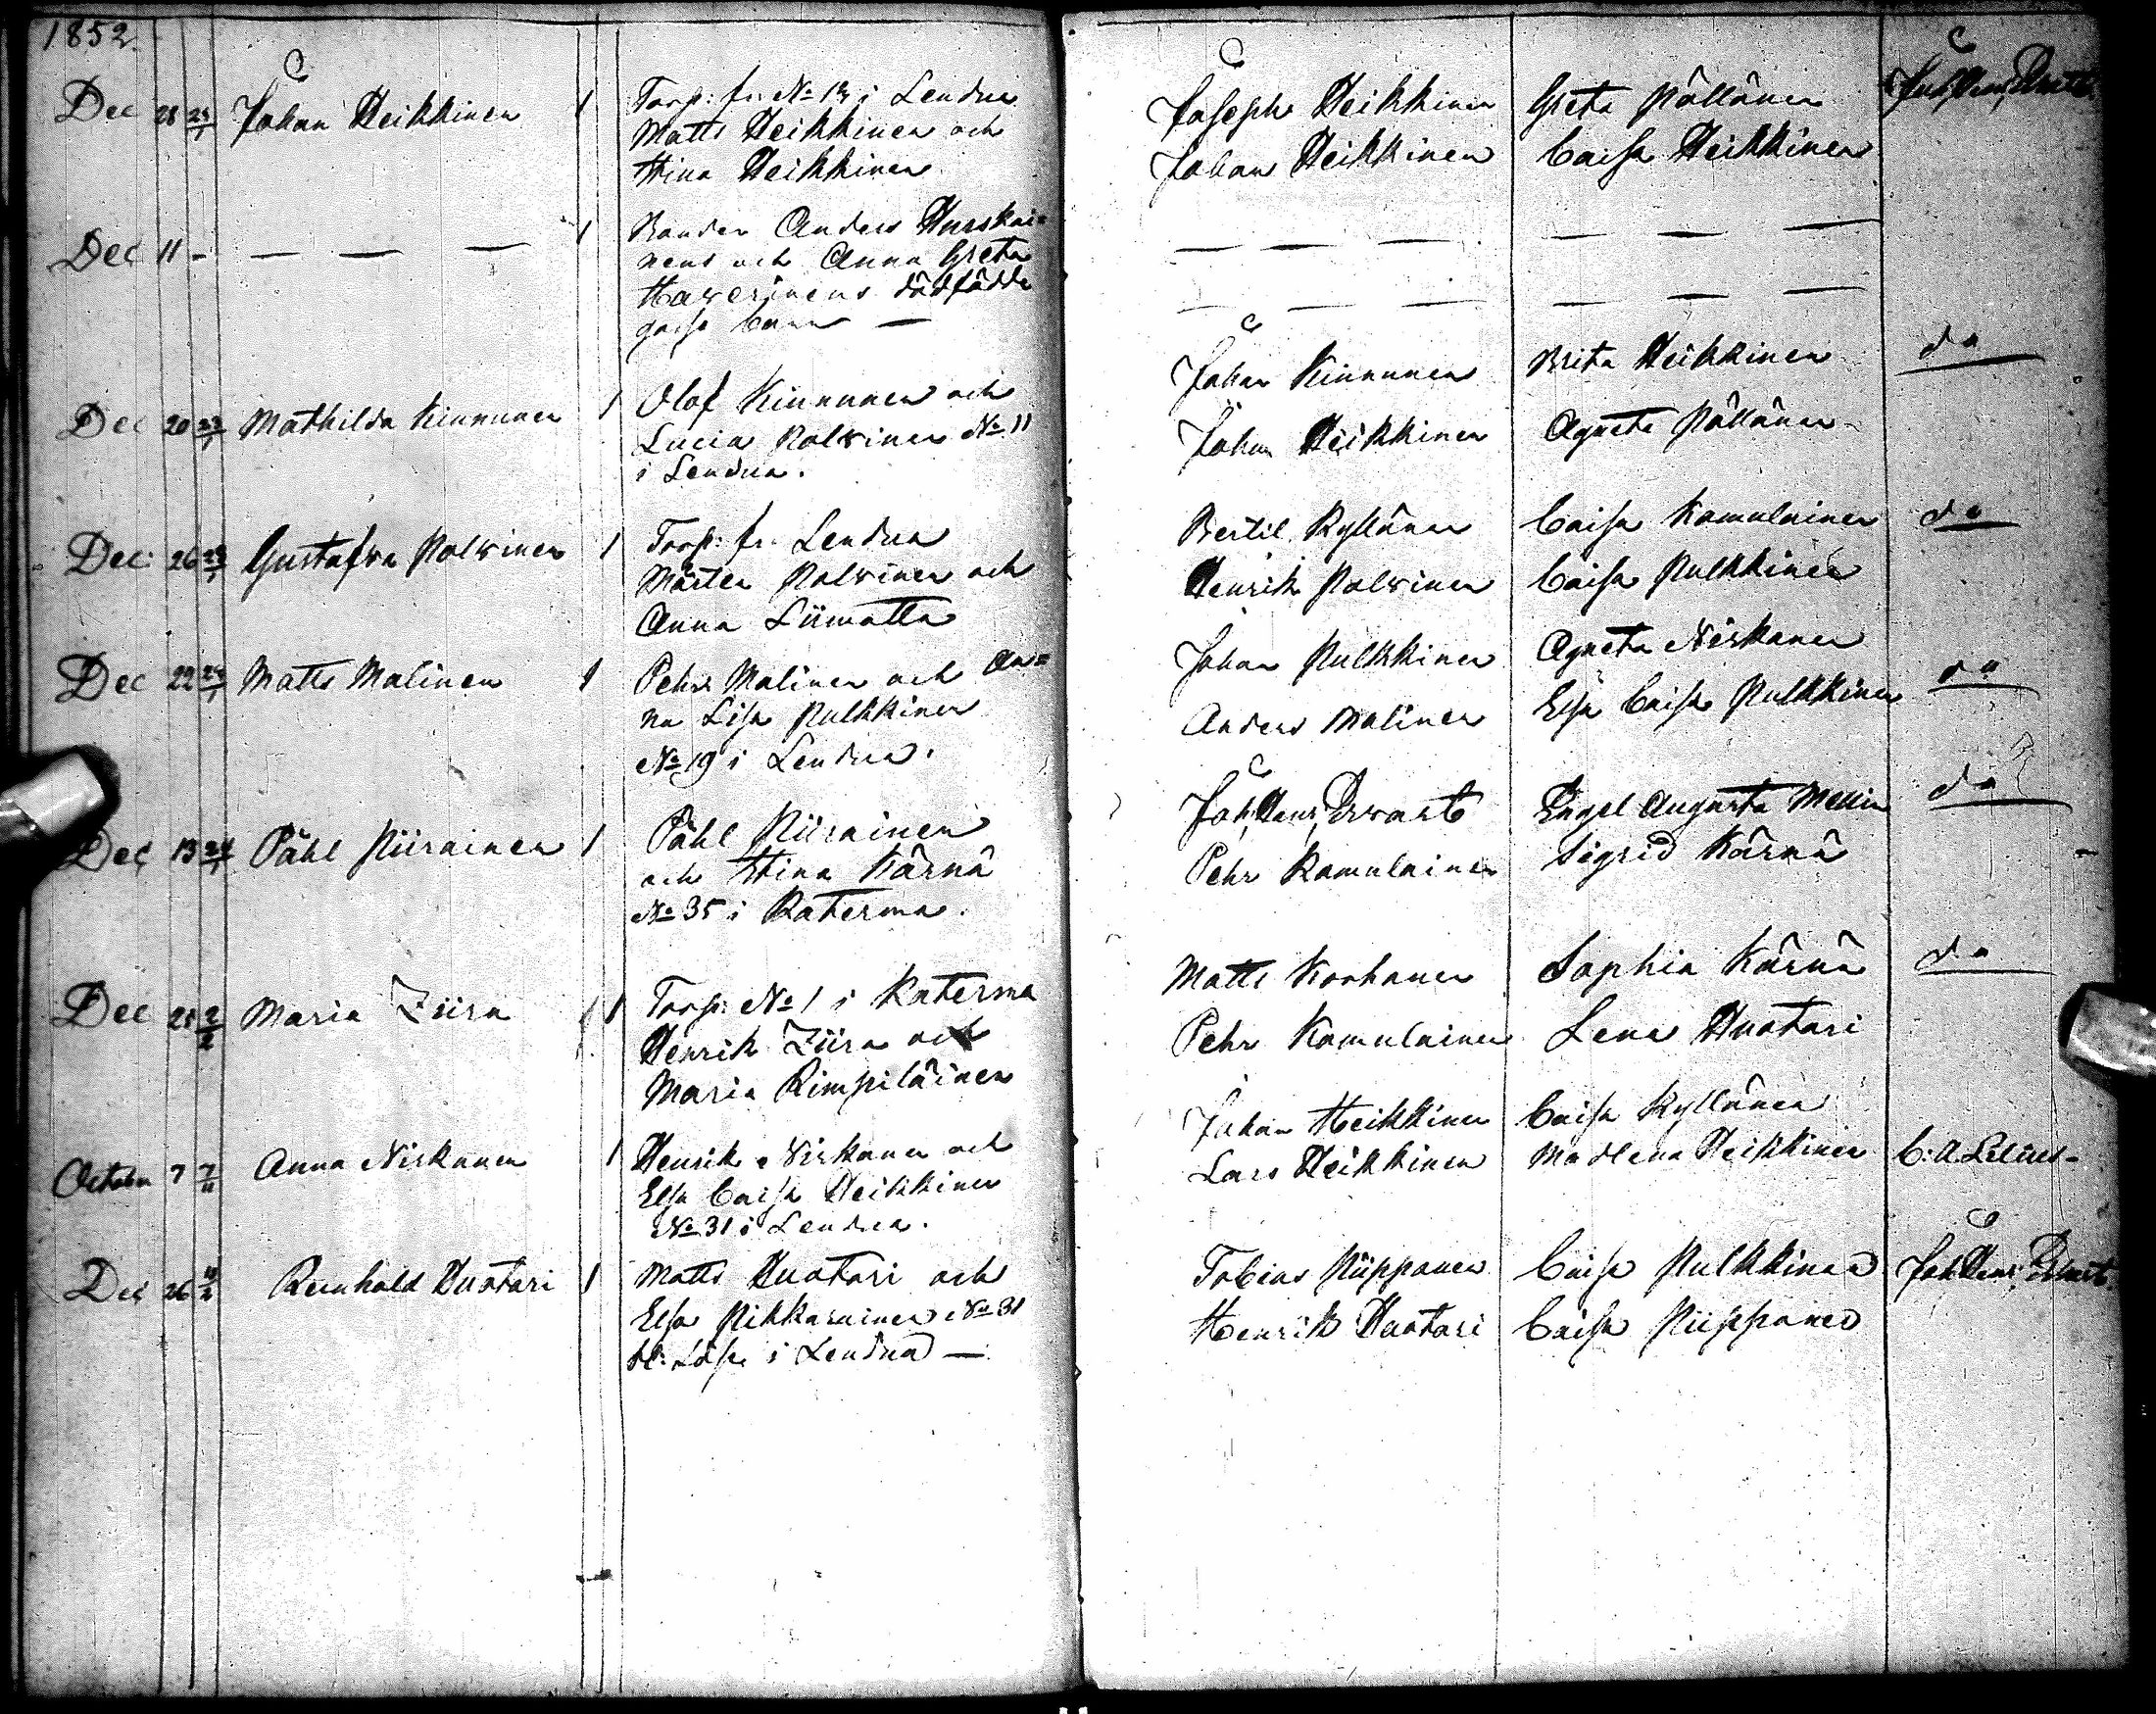 1852
Dec 28 23/1 Johan Heikkinen 1 Torp: fr. No 13 i Lendua Joseph Heikkinen Greta Pällänen
Matts Heikkinen och Johan Heikkinen Caisa Heikkinen
Stina Heikkinen
Dec 11 - — — — 1 Bonden Anders Hurskai= — — — — — —
nens och Anna Greta
Haverinens dödfödde — — — — — —
gosse barn —
Dec 20 23/1 Mathilda Kinnunen 1 Olof Kinnunen och Johan Kinnunen Brita Heikkinen do
Lucia Polvinen No 11 Johan Heikkinen Agneta Pällänen
i Lendua.
Dec: 26 23/1 Gustafva Polvinen 1 Torp: fr. Lendua Bertil Kyllönen Caisa Kamulainen do
Mårten Polvinen och Henrik Polvinen Caisa Pulkkinen
Anna Liimatta
Dec 22 24/1 Matts Malinen 1 Pehr Malinen och An= Johan Pulkkinen Agneta Niskanen do
na Lisa Pulkkinen Anders Malinen Elsa Caisa Pulkkinen
No 19 i Lendua.
Dec 13 24/1 Påhl Piirainen 1 Påhl Piirainen Joh, Henr, Engel Augusta Mellin do
och Stina Kärnä Pehr Kamulainen Sigrid Kärnä
No 35 i Katerma.
Dec 21 2/2 Maria Ziira 1 Torp: No 1 i Katerma Matts Korhonen Sophia Kärnä do
Henrik Ziira och Pehr Kamulainen Lena Huotari
Maria Rimpiläinen
October 7 7/11 Anna Niskanen 1 Henrik Niskanen och Johan Heikkinen Caisa Kyllönen
Elsa Caisa Heikkinen Lars Heikkinen Madlena Heikkinen C: A. Lilius -
No 31 i Lendua.
Dec 26 Reinhold Huotari 1 Matts Huotari och Tobias Piipponen Caisa Pulkkinen Joh, Henr,
Elsa Pikkarainen No 31 Henrik Huotari Caisa Piipponen
i Lendua —